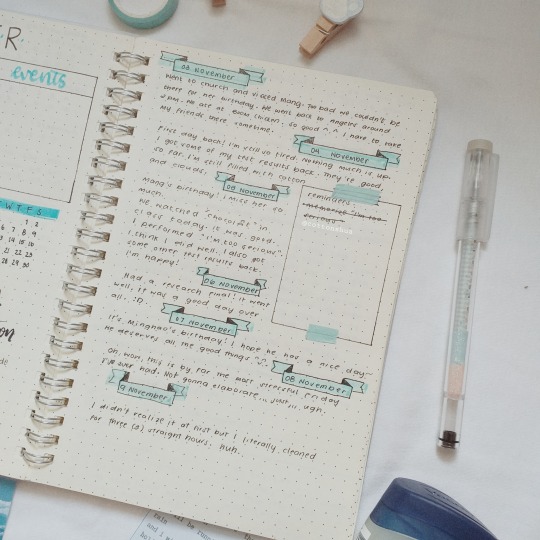 ER
events
W T F S
1 2
6 7 8 9
13 14 15 16
20 21 22 23
27 28 29 30
03 November
Went to church and visited Mang. Too bad we couldn't be
there for her birthday. We went back to Angeles around
4pm. We ate at 8oom chicken. So good ^.^ I have to take
my friends there sometime.
04 November
First day back! I'm really so tired. Nothing much is up.
I got some of my test results back. They're good
so far. I'm still filled with cotton
and clouds.
05 November
Mang's birthday! I miss her so
much.
We watched "Chocolate" in
class today. It was good.
I performed "I'm too serious".
I think I did well. I also got
some other test results back.
I'm happy!
reminders:
memorize "I'm too
serious"
@cottonahua
06 November
Had a research final! It went
well. It was a good day over
all. :D.
07 November
It's Minghao's birthday! I hope he has a nice day
He deserves all the good things
08 November
Oh, wow, this is by far the most stressful friday
I've ever had. Not gonna elaborate... just... ugh.
9 November
I didn't realize it at first but I literally cleaned
for three (3) straight hours. Huh.